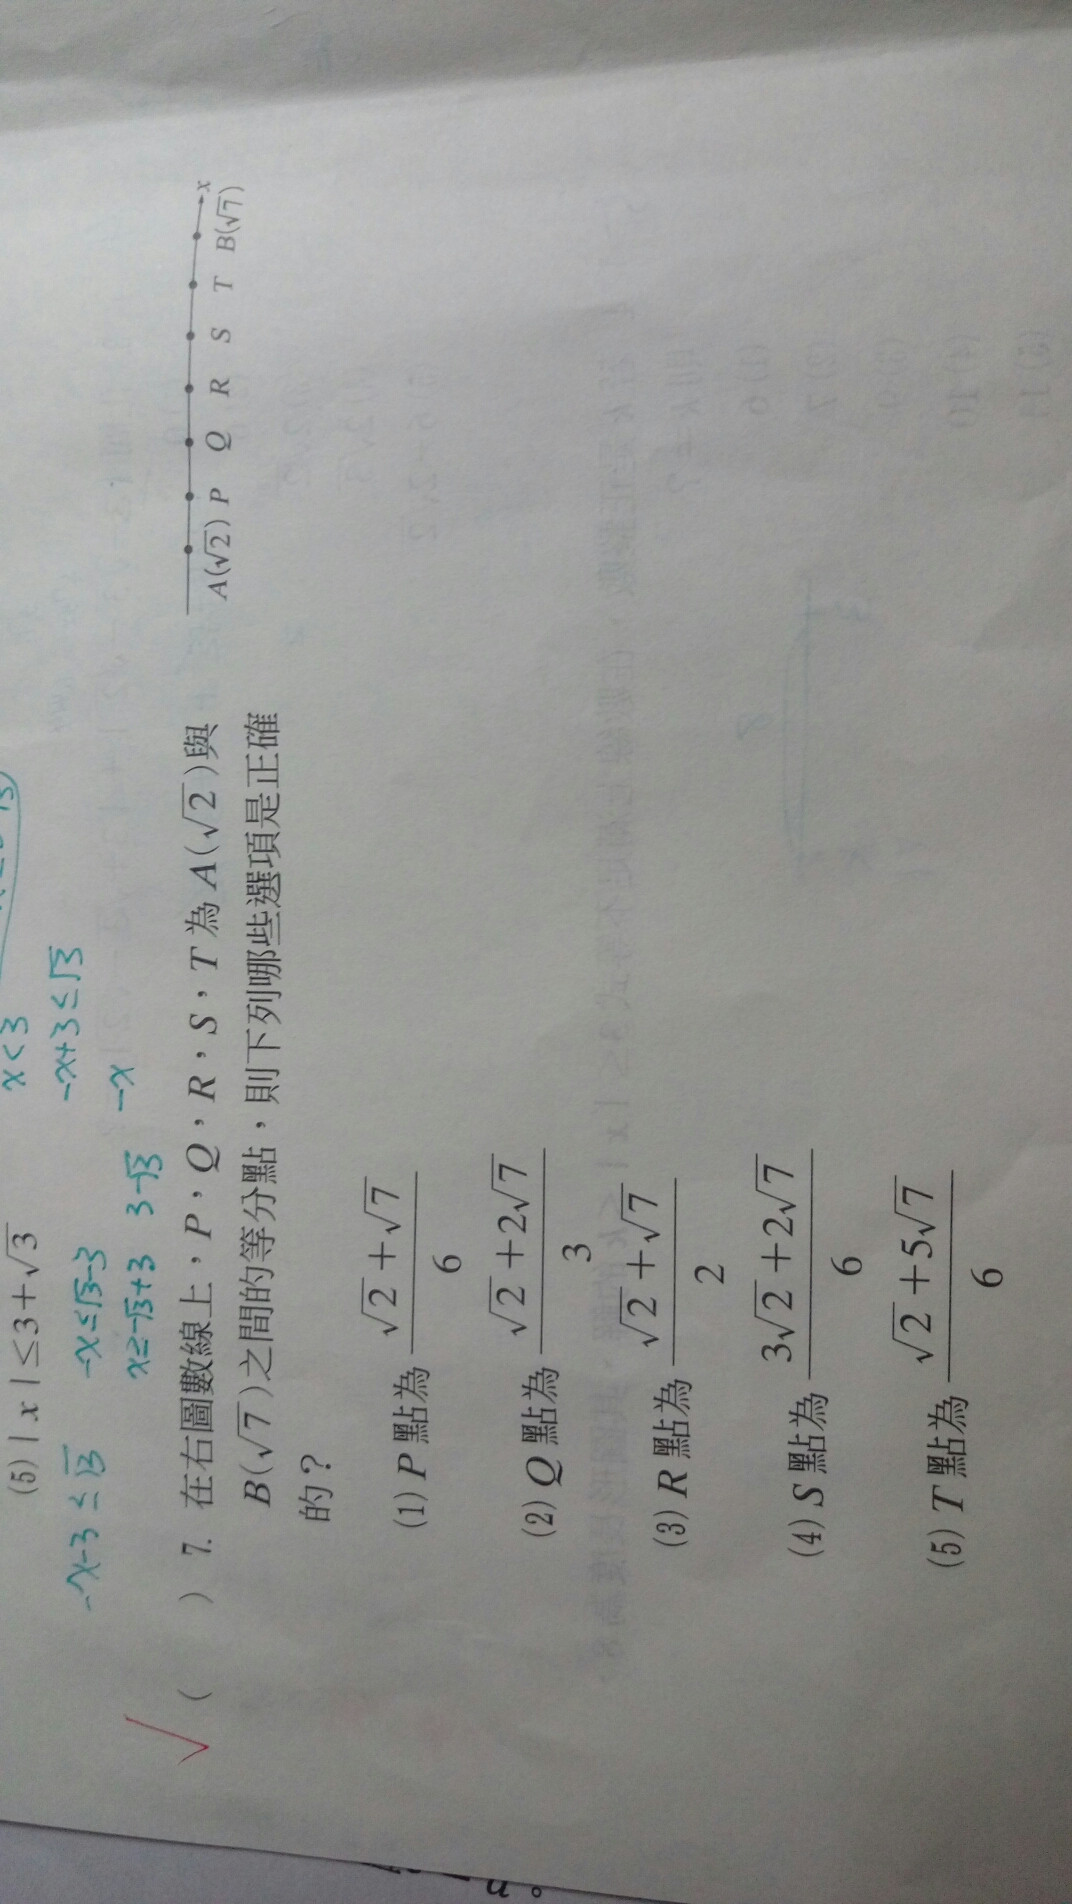 x<3
(5) | x | ≤ 3+√3
-x+3≤√3
-x-3≤√3
-x≤√3-3
-x
x≥-√3+3
3-√3
( ) 7. 在右圖數線上，P，Q，R，S，T 為 A(√2)與
B(√7)之間的等分點，則下列哪些選項是正確
的？
A(√2) P Q R S T B(√7) x
(1) P 點為 (√2+√7)/6
(2) Q 點為 (√2+2√7)/3
(3) R 點為 (√2+√7)/2
(4) S 點為 (3√2+2√7)/6
(5) T 點為 (√2+5√7)/6